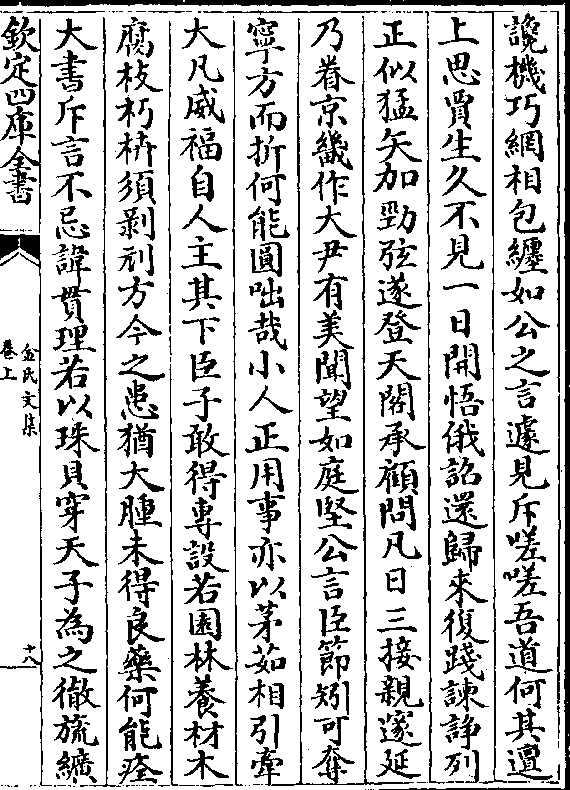 讒機巧網相包纒如公之言遽見斥嗟嗟吾道何其邅
上思賈生久不見一日開悟俄詔還歸來復踐諫諍列
正似猛矢加勁弦遂登天閣承顧問凡日三接親邃延
乃眷京畿作大尹有美聞望如庭堅公言臣節矧可奪
寧方而折何能圓咄哉小人正用事亦以茅茹相引牽
大凡威福自人主其下臣子敢得專設若園林養材木
腐枝朽枿須剥刓方今之患猶大腫未得良藥何能痊
大書斥言不忌諱貫理若以珠貝穿天子為之徹旒纊
欽定四庫全書
金氏文集
卷上
十八